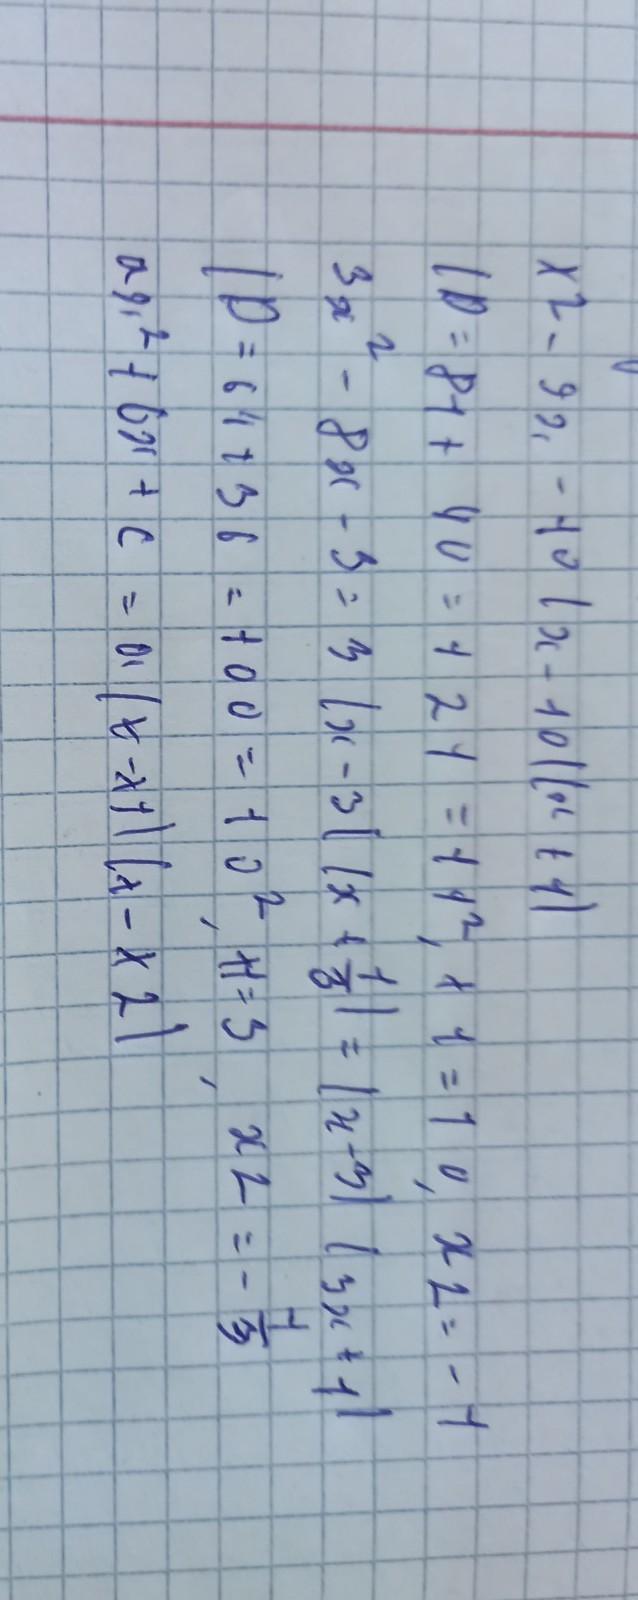 x2 - 9x - 10 (x - 10)(x + 1)
(D = 81 + 40 = 121 = 11², x1 = 10, x2 = -1
3x² - 8x - 3 = 3 (x - 3) (x + 1/3) = (x - 3) (3x + 1)
(D = 64 + 36 = 100 = 10², x1 = 3, x2 = - 1/3
ax² + bx + c = a (x - x1) (x - x2)